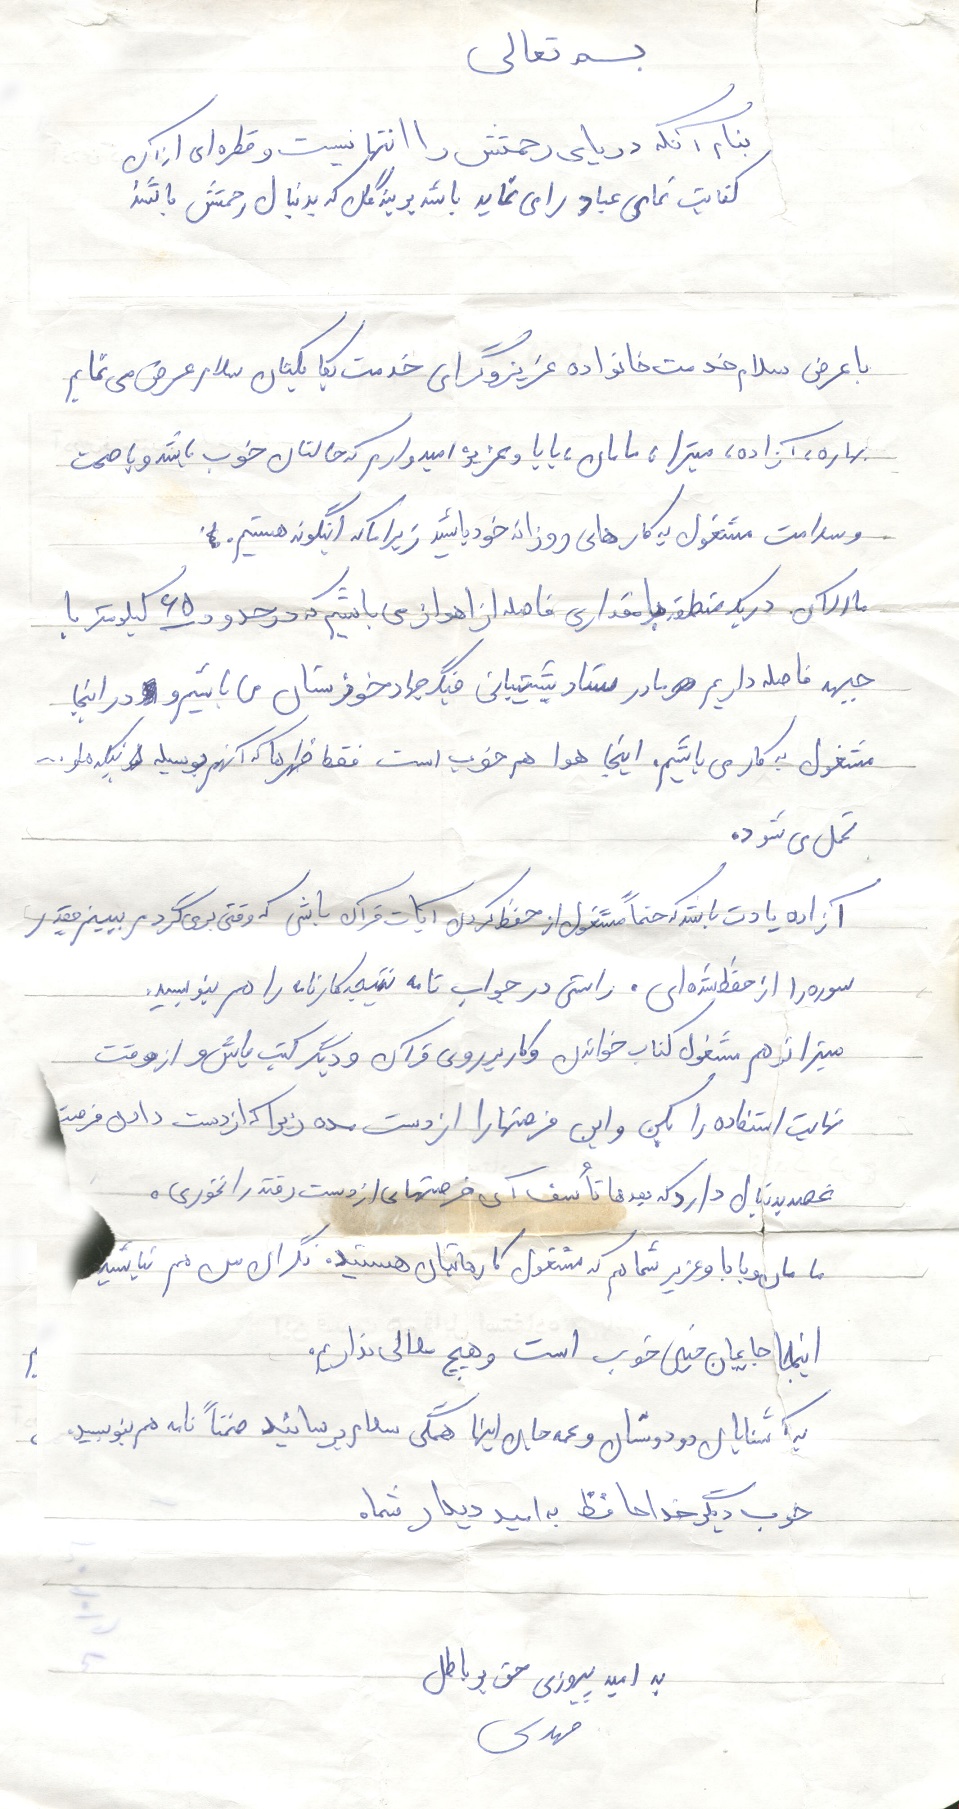 بسمه تعالی
بنام آنکه دریای رحمتش را انتها نیست و قطره ای از آن
کفایت تمامی عباد را می نماید باشد پوینده گان که بدنبال رحمتش باشند
با عرض سلام خدمت خانواده عزیز و گرامی خدمت یکایکتان سلام عرض می نمایم
بهاره، آزاده، میترا، مامان، بابا و عزیز امیدوارم که حالتان خوب باشد و با صحت
و سلامت مشغول به کارهای روزانه خود باشید زیرا ما که اینگونه هستیم.
ما الان در یک منطقه با مقداری فاصله از اهواز می باشیم که در حدود ۶۵ کیلومتر با
جبهه فاصله داریم ما در ستاد پشتیبانی جنگ جهاد خوزستان می باشیم و در اینجا
مشغول به کار می باشیم. اینجا هوا هم خوب است فقط ظهرها که آنهم بوسیله
تحمل می شود.
آزاده یادت باشد که حتماً مشغول از حفظ کردن آیات قرآن باشی که وقتی برمی گردم ببینم چقدر
سوره را از حفظ شده ای. راستی در جواب نامه نتیجه کارنامه را هم بنویسید.
میترا تو هم مشغول کتاب خواندن و کار بر روی قرآن و دیگر کتب باش و از وقت
نهایت استفاده را بکن و این فرصتها را از دست مده زیرا که از دست دادن فرصت
غصه بدنبال دارد که بعدها تأسف آن فرصتهای از دست رفته را نخوری.
مامان و بابا و عزیز شما هم که مشغول کارهایتان هستید. نگران من هم نباشید
اینجا جایمان خیلی خوب است و هیچ ملالی نداریم.
به آشنایان و دوستان و عمه جان اینها همگی سلام برسانید ضمناً نامه هم بنویسید.
خوب دیگر خداحافظ به امید دیدار شما.
به امید پیروزی حق بر باطل
مهدی